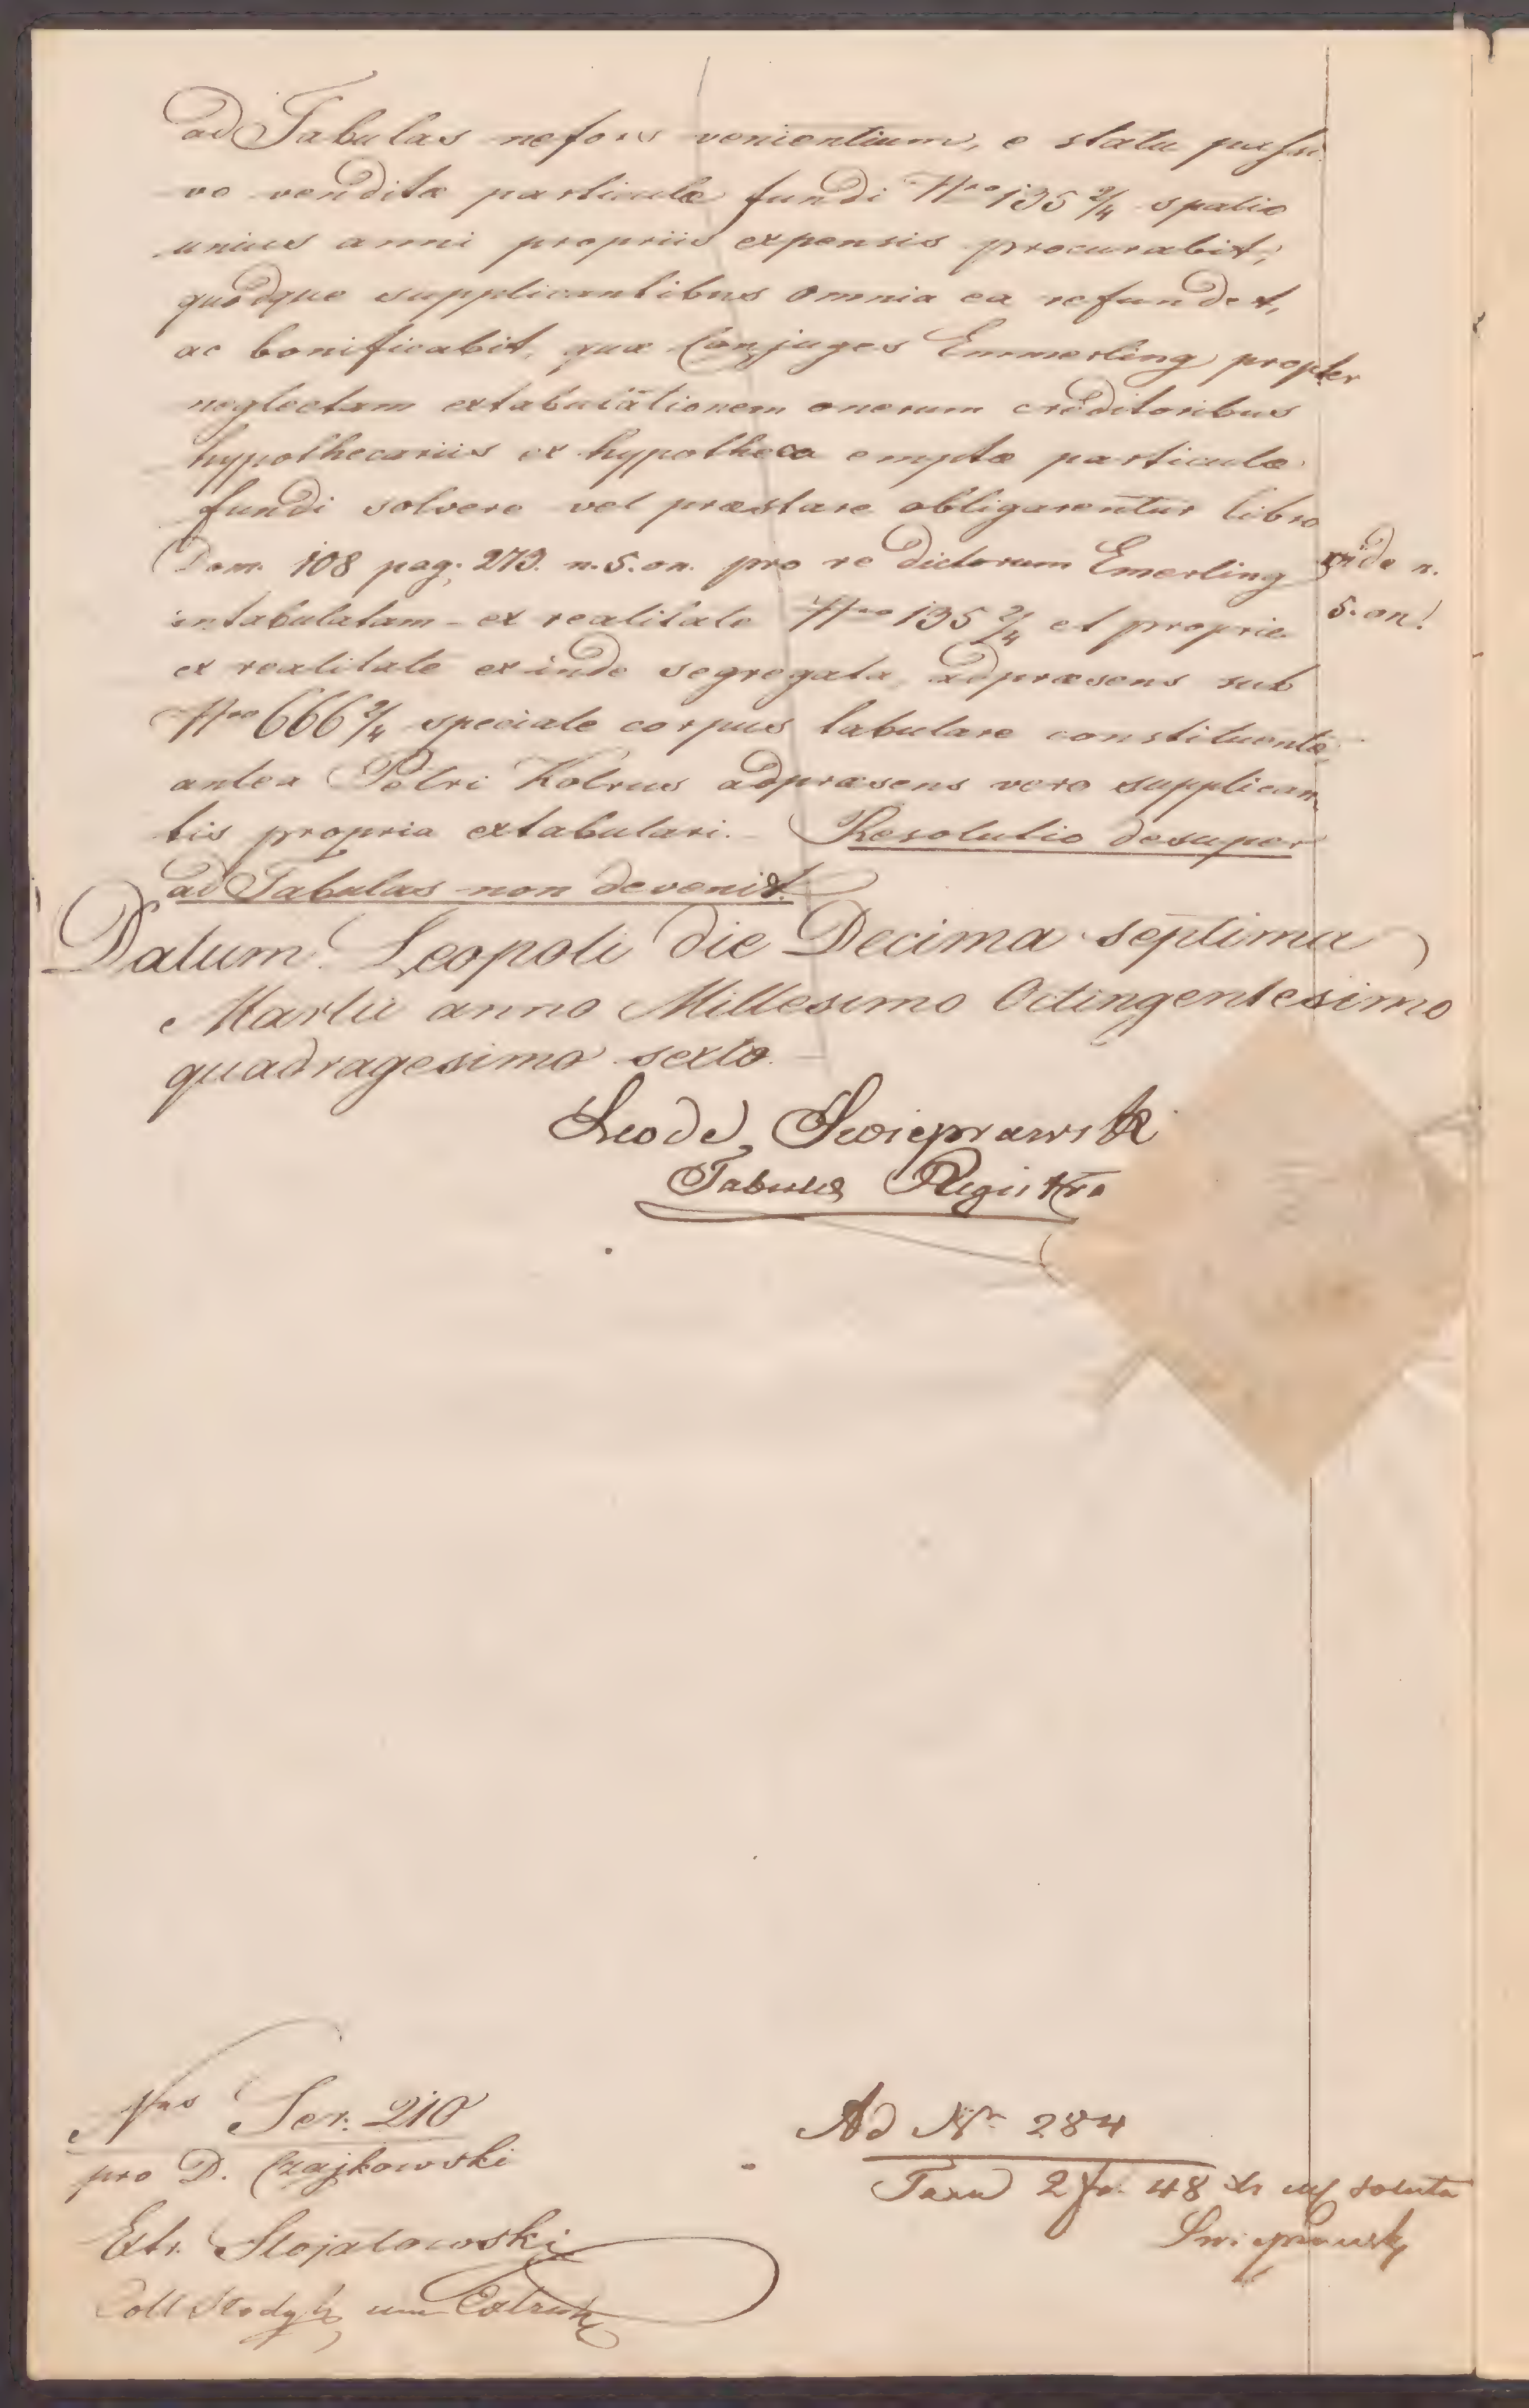 ad Tabulas nefors venientium, e statu passi
vo venditæ particulæ fundi Nro 135 2/4 spatio
unius anni propriis expensis procurabit,
quodque supplicantibus omnia ea refundet,
ac bonificabit, quæ Conjuges Emmerling propter
neglectam extabulationem onerum creditoribus
hypothecariis ex hypotheca emptæ particulæ
fundi solvere vel præstare obligarentur libro
Dom. 108 pag. 273. n. 5. on. pro re dictorum Emerling
intabulatam - ex realitate Nro 135 2/4 et proprie
ex realitate exinde segregata, adpræsens sub
Nro 666 2/4 speciale corpus tabulare constituente
antea Petri Kolrus adpræsens vero supplican
tis propria extabulari. - Resolutio desuper
ad Tabulas non devenit.
vide n.
5. on!
Datum Leopoli die Decima septima
Martii anno Millesimo Octingentesimo
quadragesimo sexto.
Swieprawski
Tabulæ Registra
Nro Ser. 210
pro D. Czajkowski
Extr. Stojalowski
Coll
Ad Nr 284
Taxa 2 fr. 48 xr soluta
Swieprawski